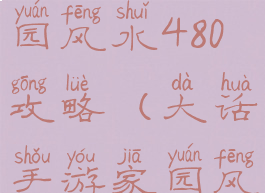 yuán fēng shuǐ
园风水480
gōng lüè dà huà
攻略(大话
shǒu yóu jiā yuán fēng
手游家园风